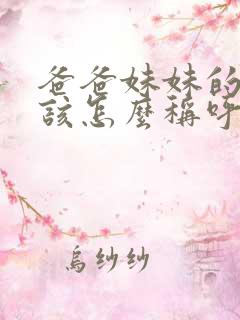 爸爸妹妹的
該怎麼稱呼
烏紗紗